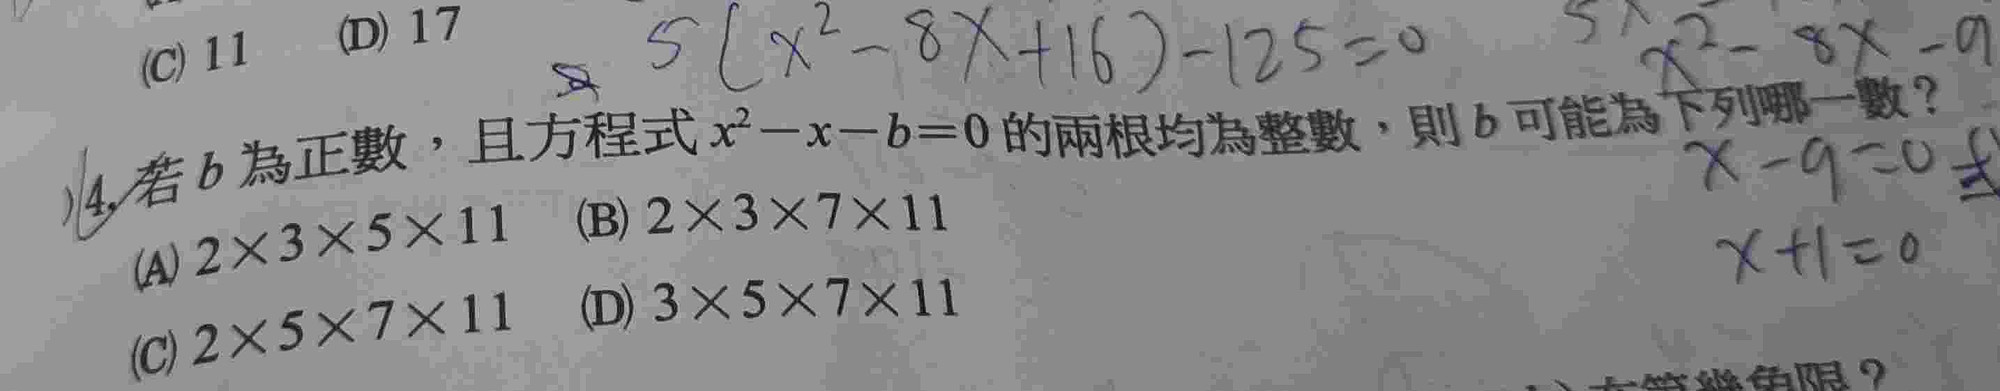 (C) 11 (D) 17
5(x²-8x+16)-125=0
x²-8x-9
14. 若 b 為正數，且方程式 x²-x-b=0 的兩根均為整數，則 b 可能為下列哪一數？
x-9=0
(A) 2×3×5×11 (B) 2×3×7×11
x+1=0
(C) 2×5×7×11 (D) 3×5×7×11
象限？